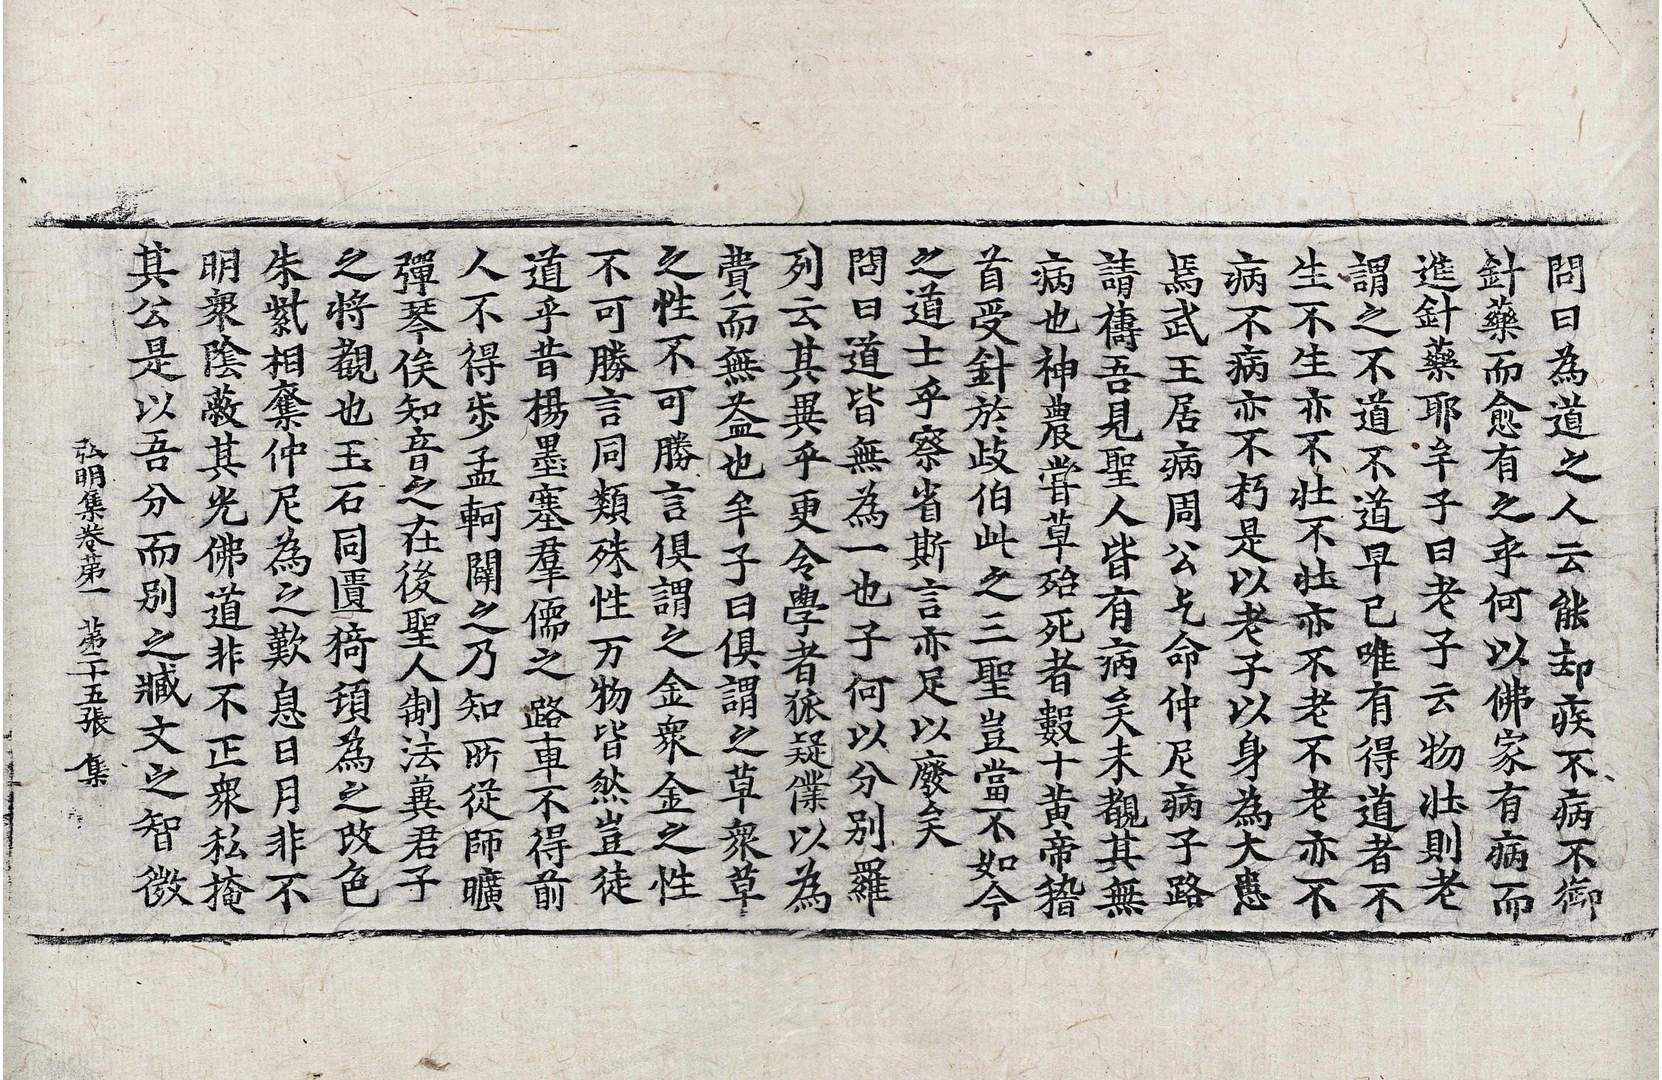 問曰為道之人云能却疾不病不御
針藥而愈有之乎何以佛家有病而
進針藥耶牟子曰老子云物壯則老
謂之不道不道早已唯有得道者不
生不生亦不壯不壯亦不老不老亦不
病不病亦不朽是以老子以身為大患
焉武王居病周公乞命仲尼病子路
請禱吾見聖人皆有病矣未覩其無
病也神農嘗草殆死者數十黃帝稽
首受針於歧伯此之三聖豈當不如今
之道士乎察省斯言亦足以廢矣
問曰道皆無為一也子何以分別羅
列云其異乎更令學者狐疑僕以為
費而無益也牟子曰俱謂之草衆草
之性不可勝言俱謂之金衆金之性
不可勝言同類殊性万物皆然豈徒
道乎昔楊墨塞羣儒之路車不得前
人不得步孟軻闢之乃知所從師曠
彈琴俟知音之在後聖人制法冀君子
之將觀也玉石同匱猗頓為之改色
朱紫相奪仲尼為之歎息日月非不
明衆陰蔽其光佛道非不正衆私掩
其公是以吾分而別之臧文之智微
弘明集卷第一 第二十五張 集